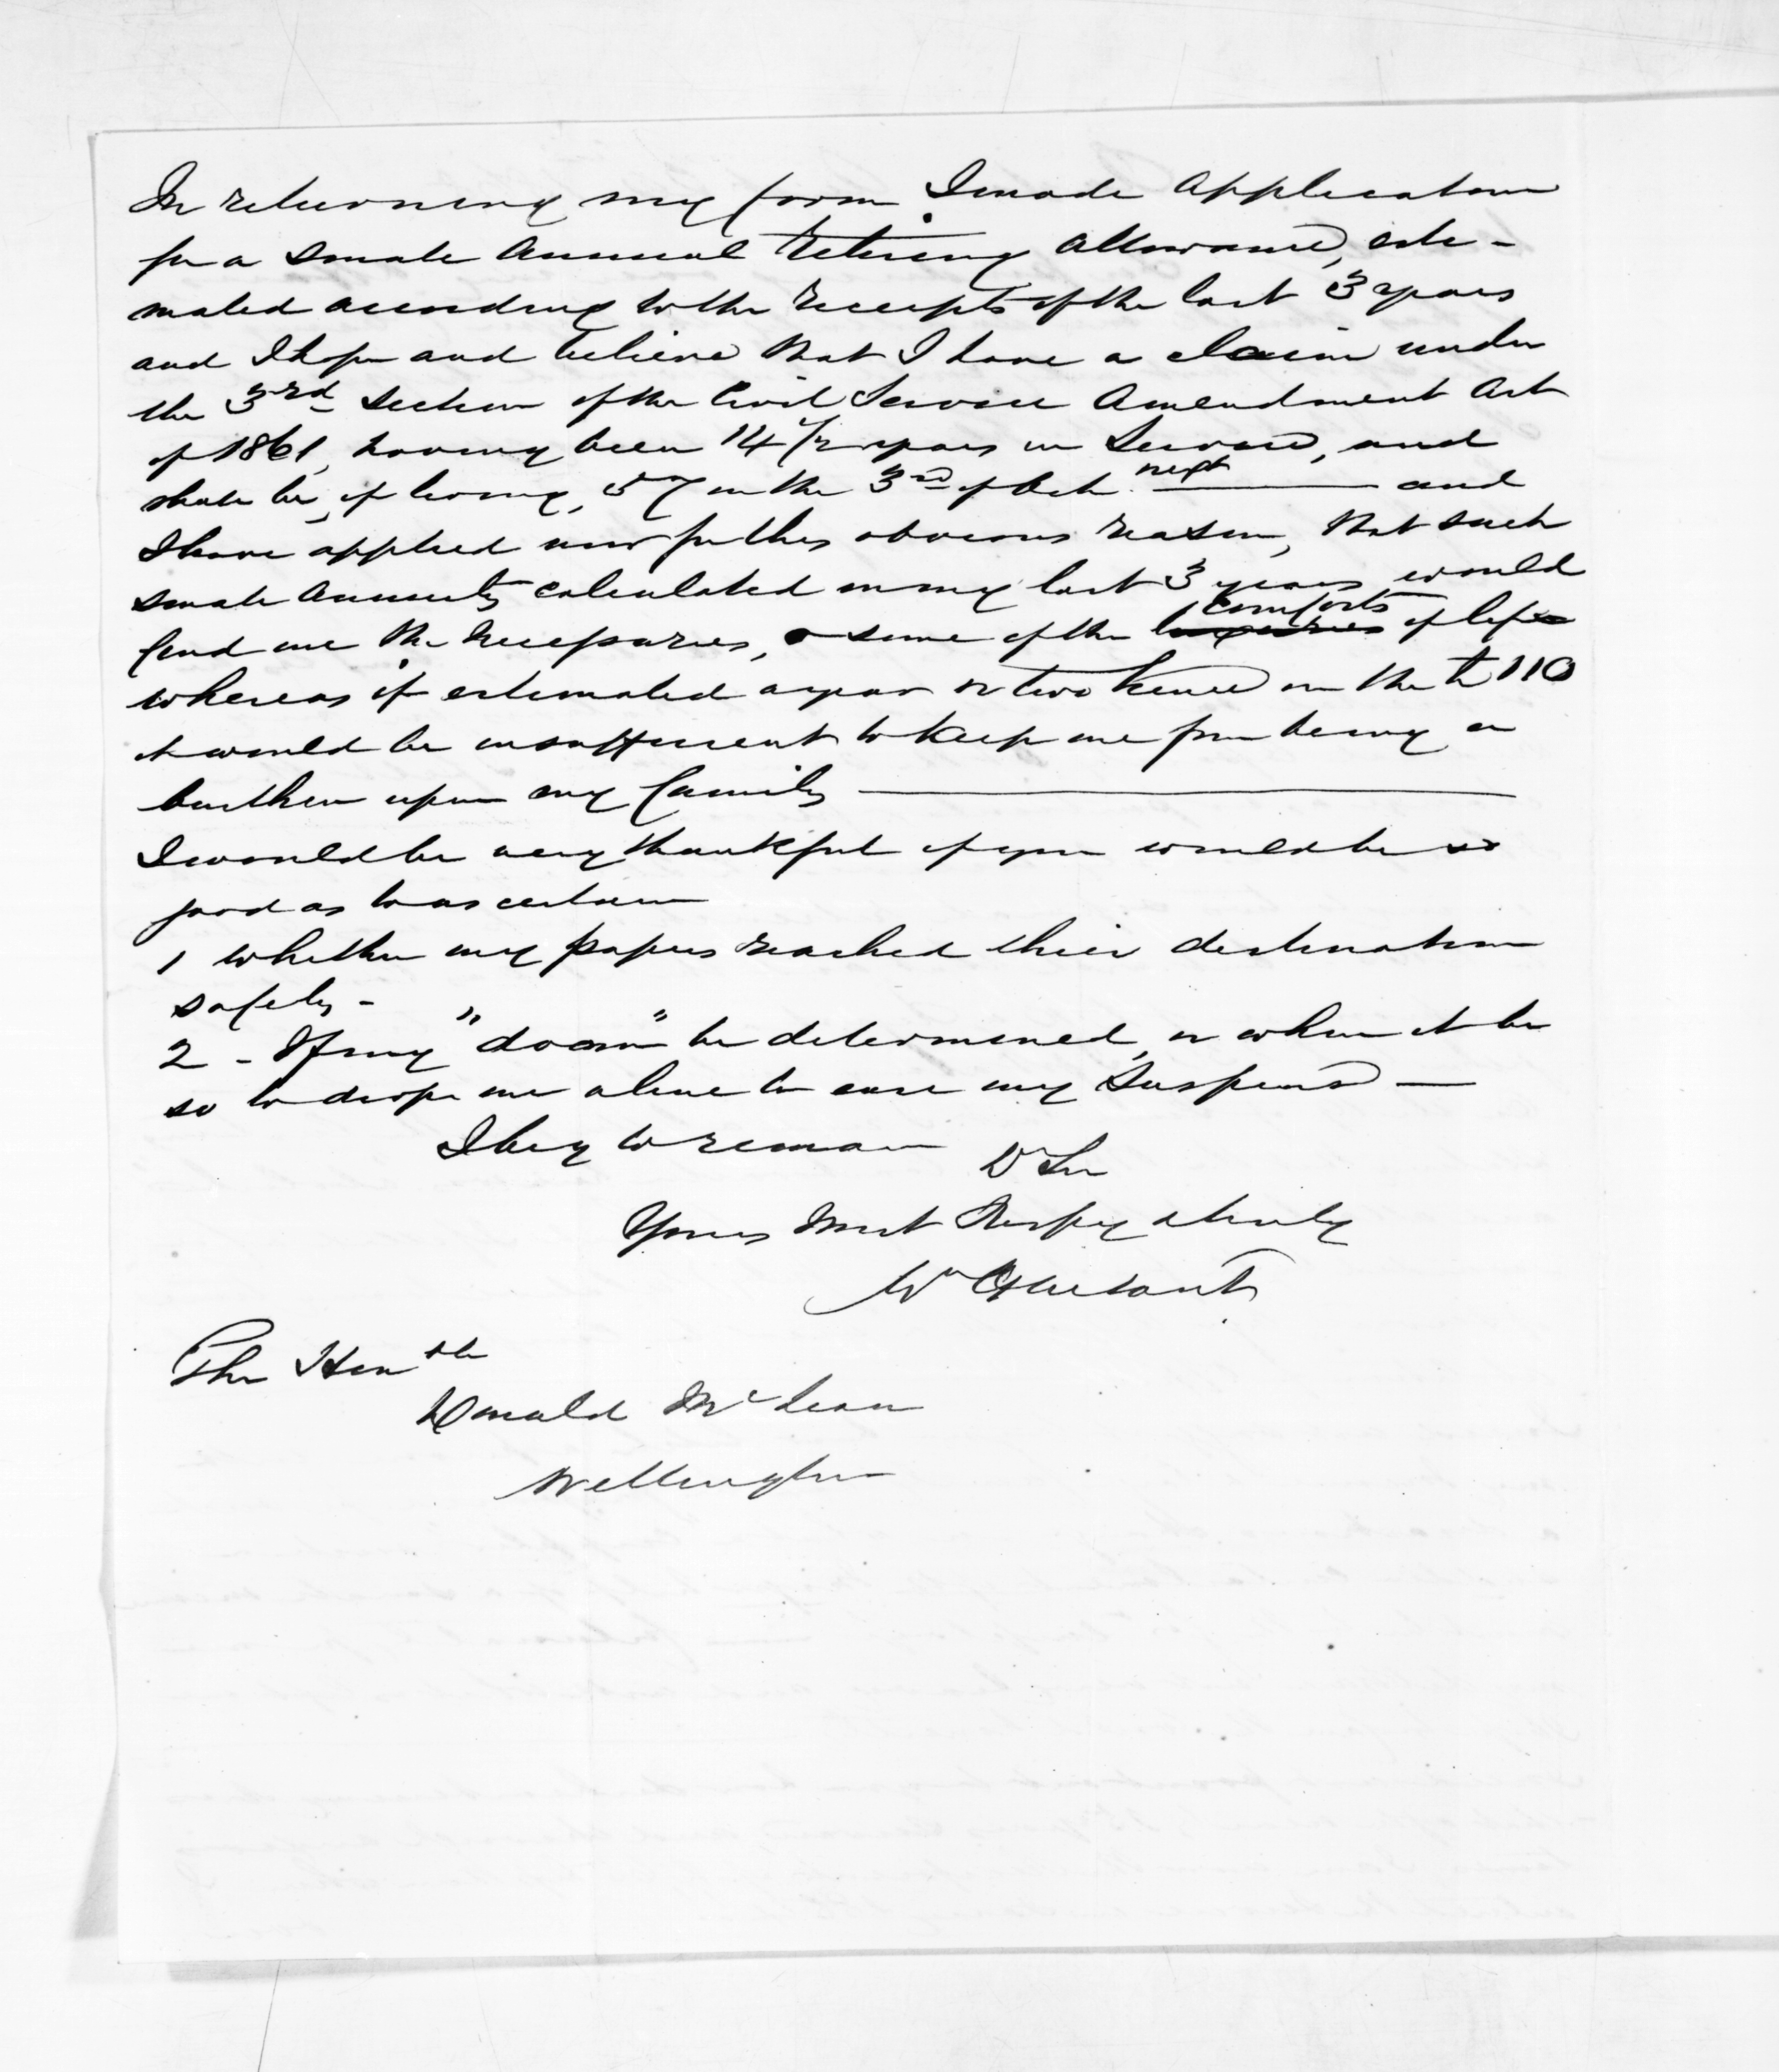 In returning my form I made application
for a small annual retiring allowance, esti-
mated according to the receipts of the last 3 years
and I hope and believe that I have a claim under
the 3rd section of the Civil Service Amendment Act
of 1861, having been 14 1/2 years in Service, and
shall be, if living, 57 on the 3rd of Feb. next and
I have applied now for this obvious reason, that such
small annuity calculated on my last 3 years would
find me the necessaries, or some of the luxuries comforts of life
whereas if estimated a year or two hence on the £110
it would be insufficient to keep me from being a
burthen upon my family
I would be very thankful if you would be so
good as to ascertain
1 whether my papers reached their destination
safely -
2 - If my "doom" be determined, or when it be
so to drop me a line to ease my suspense —
I beg to remain Dr Sir
Yours Most Respy & truly
Wm
The Honble
Donald McLean
Wellington